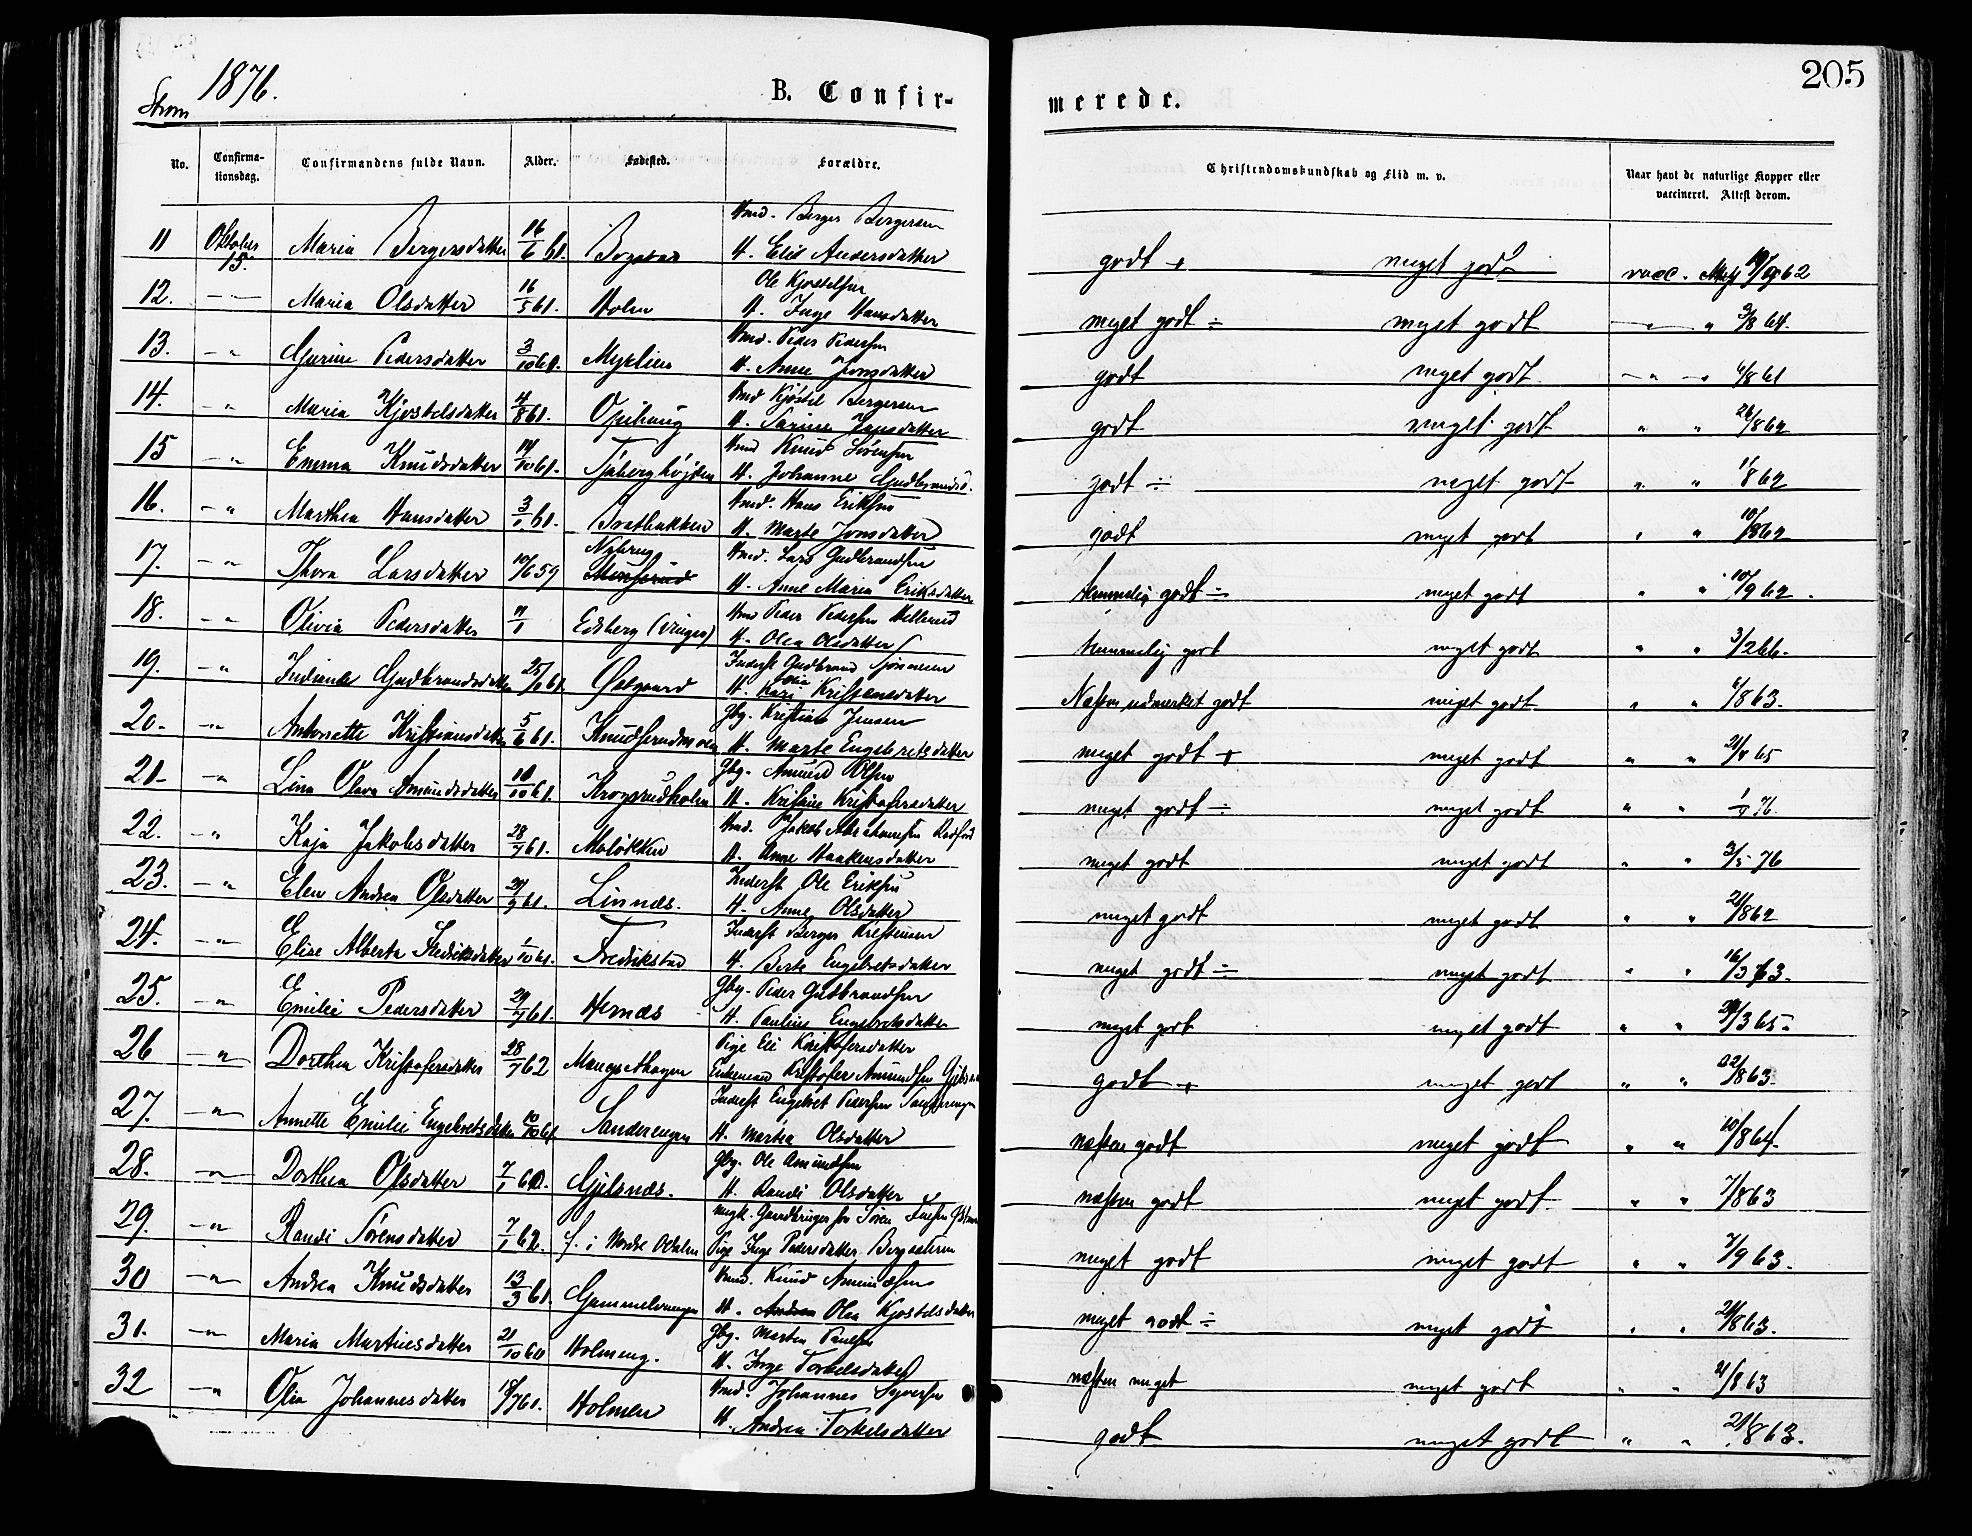 205
Strøm 1876.
B. Confir-
merede.
No.
Confirma-
tionsdag.
Confirmandens fulde Navn.
Alder.
Fødested.
Forældre.
Christendomskundskab og Flid m. v.
Naar havt de naturlige Kopper eller
vaccineret. Attest derom.
Hmd. Berger Bergersen
11 Oktober 15. Maria Bergersdatter 16/6 61. H. Elis Andersdatter godt + meget godt vacc.
Ole Kjostelsen
12. — " — Maria Olsdatter 16/5 61. Holm H. Inge Hansdatter meget godt ÷ meget godt — " 3/8 64.
Hmd. Peder Pedersen
13. — " Gurine Pedersdatter 3/10 60. Myrlien H. Anne Jonsdatter godt meget godt — " — " 6/8 61
Hmd Kjøstel Bergersen
14. — " Maria Kjøstelsdatter 4/8 61. Opihaug H. Karine Jansdatter godt meget godt " " 26/8 62
Hmd Knud Sørensen
15 — " Emma Knudsdatter 14/10 61. Tjaberghøjden H. Johanne Gudbrandsd. godt ÷ meget godt " " 11/8 62
Hmd. Hans Eriksen
16. — " Marthea Hansdatter 3/1 61. Bratbakken H. Marte Jonsdatter godt meget godt " " 10/8 62
Nybrug Hmd. Lars Gudbrandsen
17. — " Thora Larsdatter 10/6 59 H. Anne Maria Eriksdatter temmelig godt ÷ meget godt " " 10/9 62.
Hmd Peder Pedersen Hellerud
18. — " Olivia Pedersdatter Edsberg (Vinger) H. Olea Olsdatter temmelig godt meget godt " " 3/2 66.
Inderst Gudbrand
19. — " Gudbrandsdatter 25/1 61 Østgaard H. Kari Kristensdatter Næsten udmerket godt meget godt " " 6/8 63.
Gbg. Kristian Jensen
20. — " Antonette Kristiansdatter 5/6 61. Knudserudmoen H. Marte Engebretsdatter meget godt + meget godt " " 21/8 65
Gbg. Amund Olsen
21. — " Lina Olava Amundsdatter 10/10 61. Krogsrudholm H. Kristine Kristofersdatter meget godt ÷ meget godt " " 1/9 76.
Hmd. Jakob Abrahamsen
22. — " Kaja Jakobsdatter 28/7 61. Moløkken H. Anne Haakensdatter meget godt meget godt " " 3/5 76
Inderst Ole Eriksen
23. — " Elen Andrea Olsdatter 27/9 61. Linnæs. H. Anne Olsdatter meget godt meget godt " " 21/8 62
Inderst Berger Kristensen
24. — " Elise Alberta Fredriksdatter 1/10 61. Fredrikstad H. Berte Engebretsdatter meget godt ÷ meget godt " " 16/3 63.
Gbg. Peder Gudbrandsen
25. — " Emilie Pedersdatter 29/7 61. Hernæs H. Pauline Engebretsdatter meget godt meget godt " " 29/3 65.
Pige Eli Kristofersdatter
26 — " Dorthea Kristofersdatter 28/7 62 Mangsethagen Enkemand Kristofer Amundsen godt + meget godt " " 22/8 63.
Inderst Engebret Pedersen Sanderengen
27. — " Annette Emilie Engebretsdatter 10/10 61. Sanderengen H. Martea Olsdatter næsten godt meget godt " " 10/8 64.
Gbg. Ole Amundsen
28. — " Dorthea Olsdatter 7/1 60. Gjelsnæs. H. Randi Olsdatter næsten godt meget godt " " 7/8 63
Ungk. Gaardbruger søn Søren
29. — " Randi Sørensdatter 7/1 62. f. i Nordre Odalen Pige Inge Pedersdatter meget godt meget godt " " 7/9 63.
Hmd. Knud Amundsen
30 — " Andrea Knudsdatter 13/3 61. Gammelvangen H. Olea Kjøstelsdatter meget godt ÷ meget godt " " 24/8 63.
Gbg. Martin Paulsen
31. — " Maria Martinesdatter 21/10 60 Holmeng. H. Inge Torkelsdatter næsten meget meget godt " " 21/8 63
Hmd. Johannes Syversen
32 — " Olea Johannesdatter 18/7 61. Holmen H. Andrea Torkelsdatter godt meget godt " " 24/8 63.